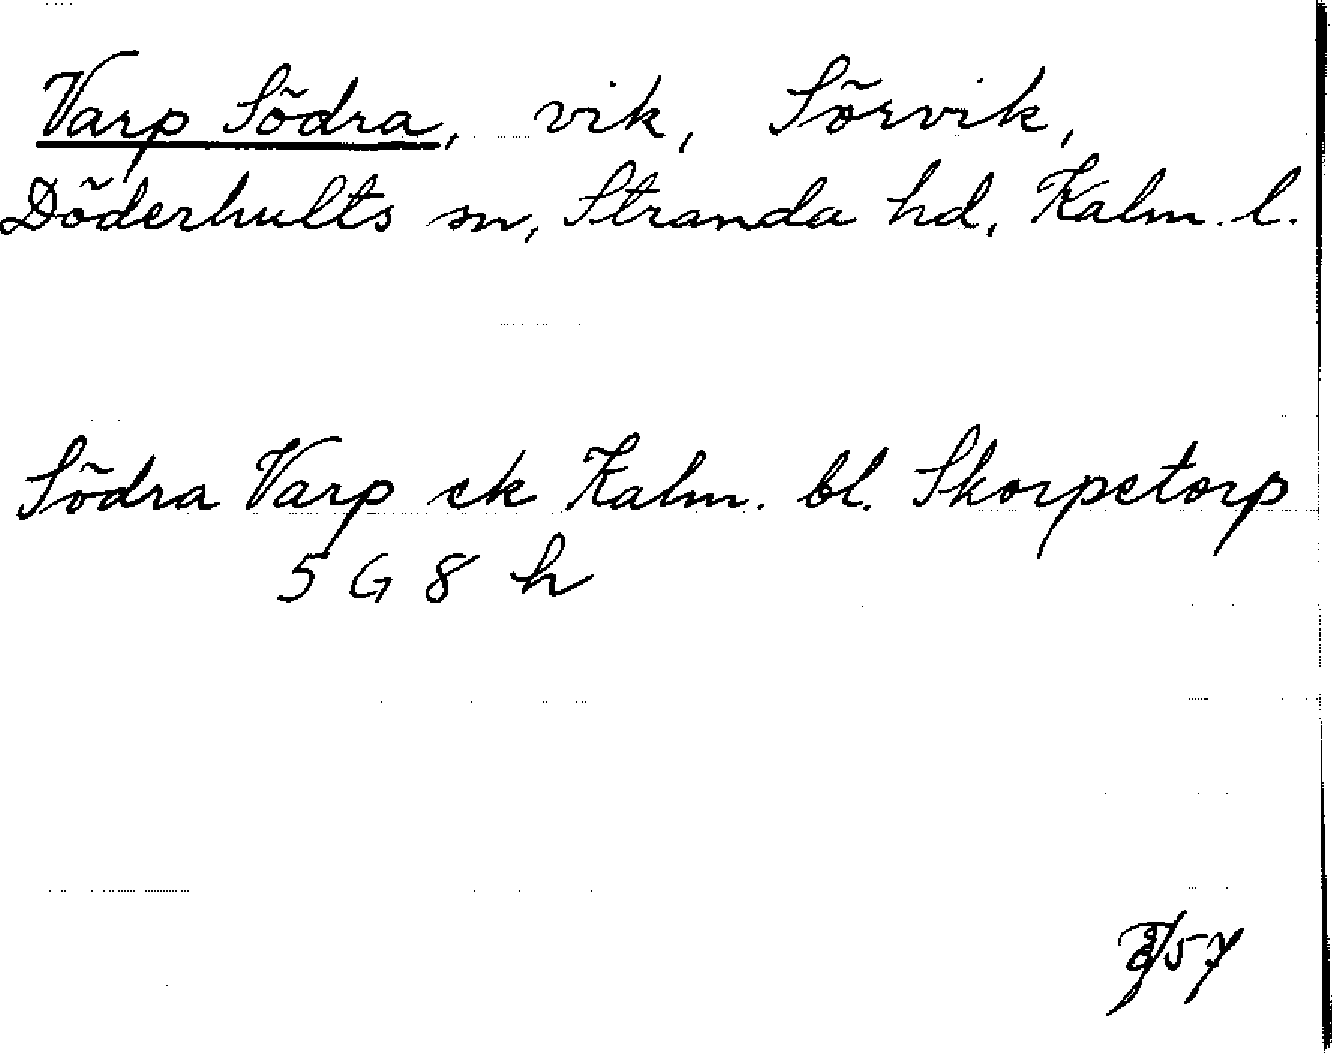 Varp Södra, vik, Sörvik,
Döderhults sn, Stranda hd, Kalm. l.
Södra Varp ek Kalm. bl. Skorpetorp
5 G 8 h
/57